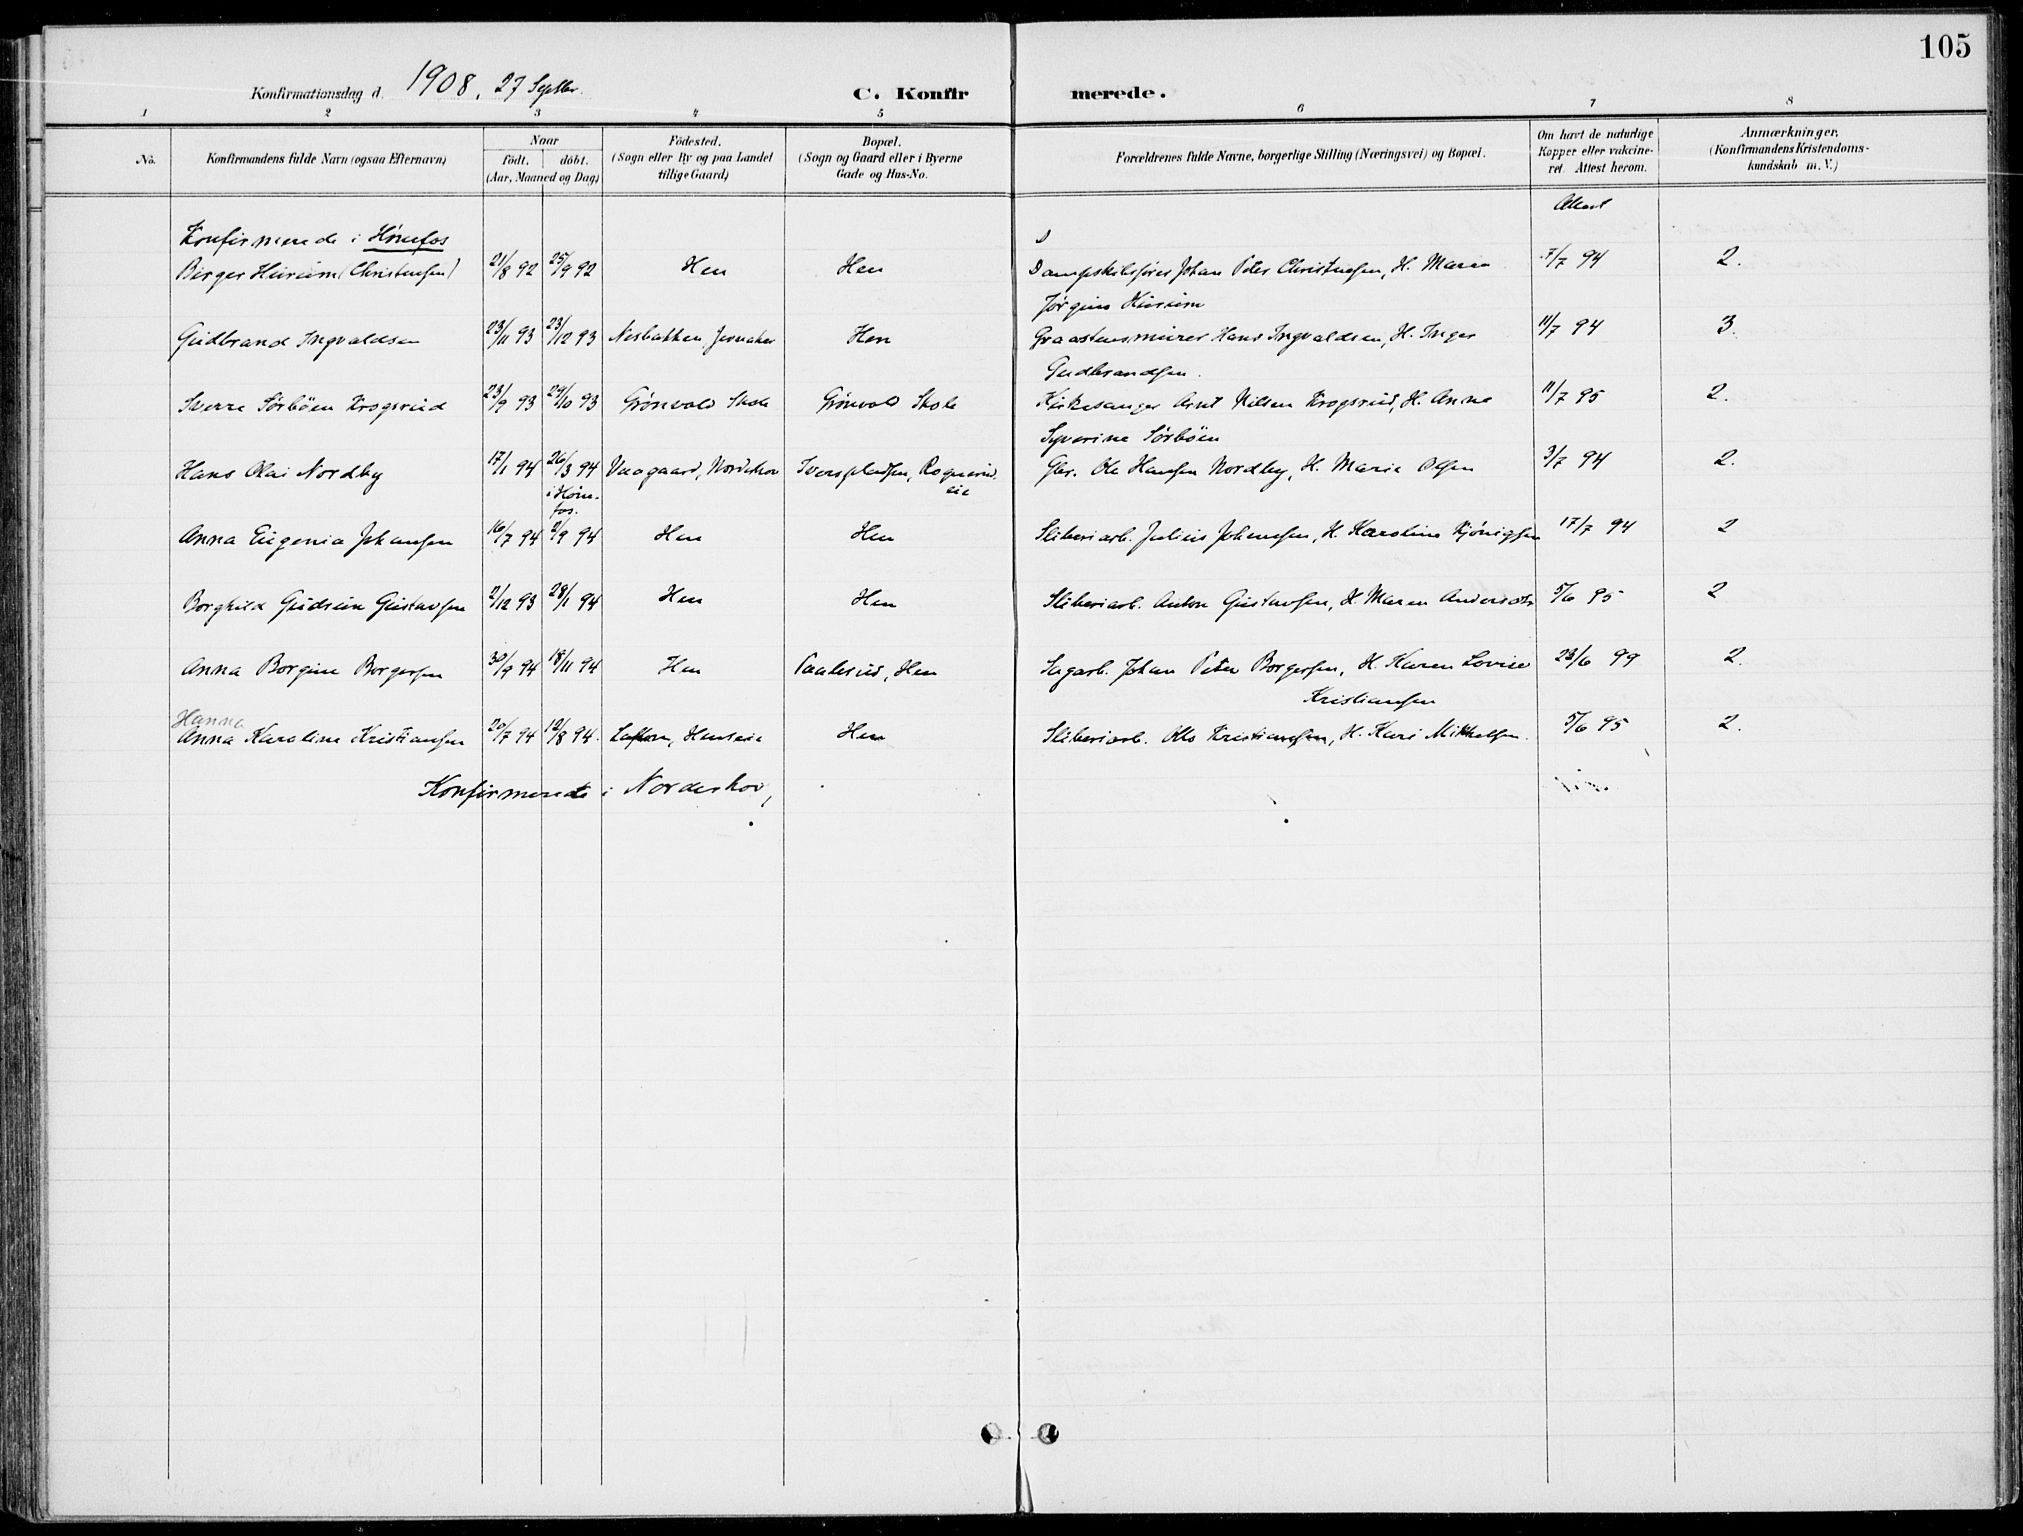 105
Konfirmationsdag d. 1908. 27 Septbr.
C. Konfirmerede.
1 2 3 4 5 6 7 8
No.
Konfirmandens fulde Navn (ogsaa Efternavn)
Naar
födt. döbt.
(Aar, Maaned og Dag)
Födested.
(Sogn eller By og paa Landet
tillige Gaard)
Bopæl.
(Sogn og Gaard eller i Byerne
Gade og Hus-No.
Forældrenes fulde Navne, borgerlige Stilling (Næringsvei) og Bopæl.
Om havt de naturlige
Kopper eller vakcine-
ret. Attest herom.
Anmærkninger.
(Konfirmandens Kristendoms-
kundskab m. V.)
Konfirmerede i Hönefos
Birger Hurum (Christensen) 21/8 92 25/9 92 Hen Hen Dampskibsförer Johan Peter Christensen, H. Maren 7/7 94 2.
Jørgine Hurum
Gudbrand Ingvaldsen 23/11 93 23/12 93 Nesbakken, Jevnaker Hen Graastensmurer Hans Ingvaldsen, H. Inger 11/7 94 3.
Gudbrandsen.
Sverre Sörböen Krogsrud 23/9 93 29/10 93 Grönvold Skole Grönvold Skole Kirkesanger Arnt Nilsen Krogsrud, H. Anne 11/7 95 2.
Syverine Sörböen
Hans Olai Nordby 17/1 94 26/3 94 Vaagaard, Norderhov Iverspladsen, Ole Hansen Nordby, H. Marie Olsen 3/7 94 2.
eie
i Höne-
fos.
Anna Eugenia Johansen 16/7 94 2/9 94 Hen Hen Sliberiarb. Julius Johansen, H. Karoline 17/7 94 2
Borghild Gudrun Gustavsen 2/12 93 28/1 94 Hen Hen Sliberiarb. Anton Gustavsen, H. Maren Andersdtr 5/6 95 2
Anna Borgine Borgersen 30/9 94 18/11 94 Hen Paalerud, Hen Sagarb. Johan Peter Borgersen, H. Karen Lovise 23/6 99 2.
Kristiansen
Hanna
Anna Karoline Kristiansen 20/7 94 12/8 94. Henseie Hen Sliberiarb. Olo Kristiansen, H. Kari Mikkelsen. 5/6 95 2.
Konfirmerede i Norderhov,